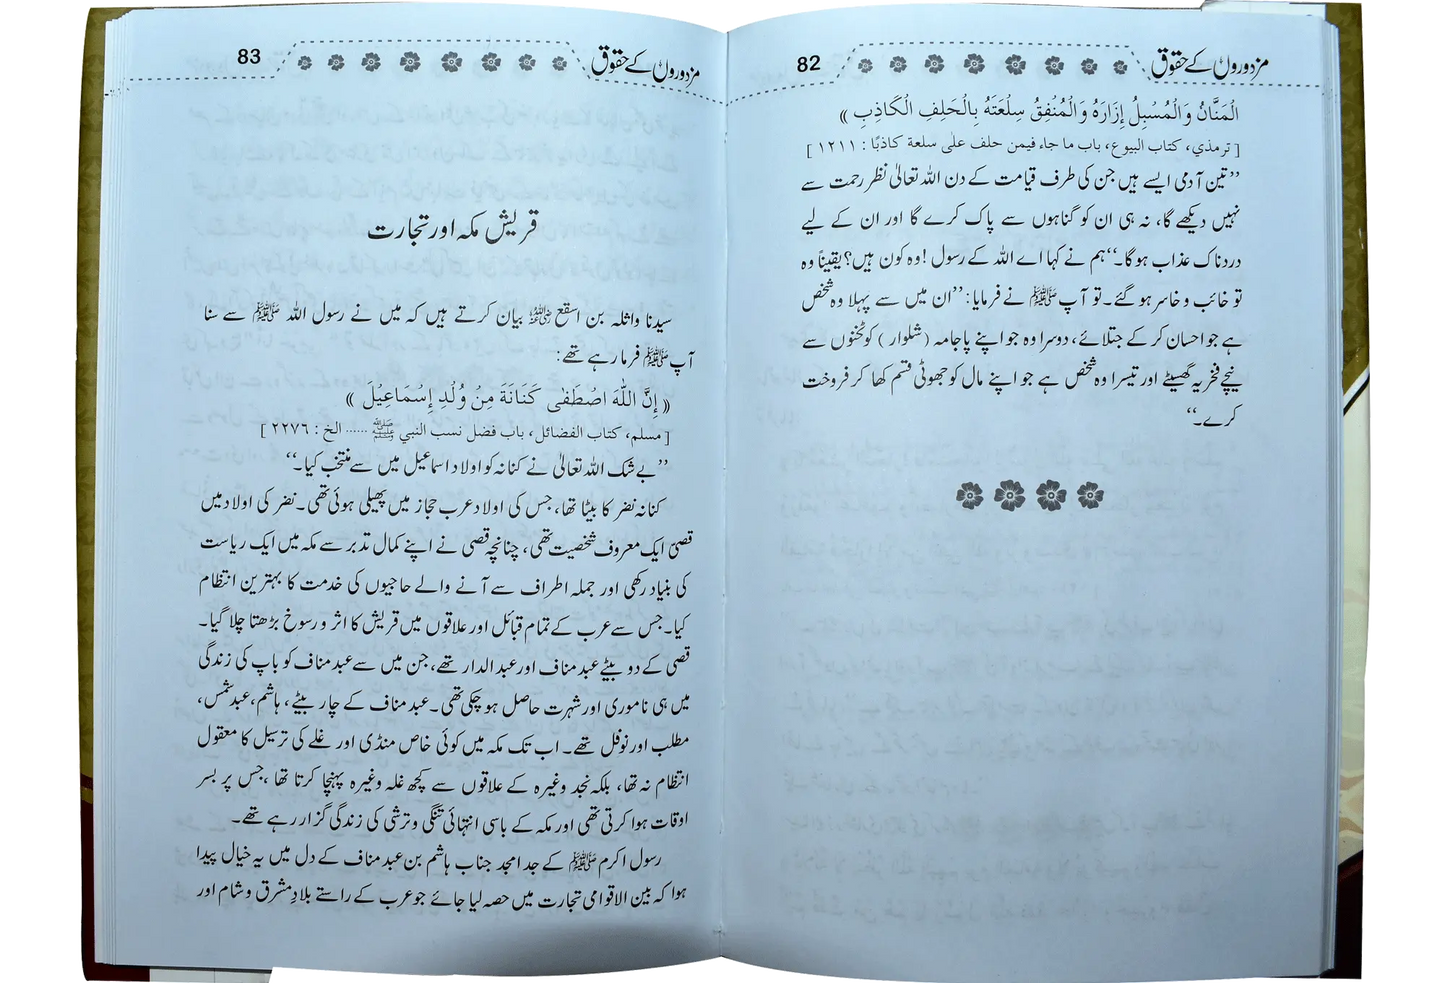 مزدوروں کے حقوق 82
الْمَنَّانُ وَالْمُسْبِلُ إِزَارَهُ وَالْمُنْفِقُ سِلْعَتَهُ بِالْحَلِفِ الْكَاذِبِ ))
[ ترمذي، كتاب البيوع، باب ما جاء فيمن حلف على سلعة كاذبًا : ١٢١١ ]
’’تین آدمی ایسے ہیں جن کی طرف قیامت کے دن اللہ تعالیٰ نظر رحمت سے
نہیں دیکھے گا، نہ ہی ان کو گناہوں سے پاک کرے گا اور ان کے لیے
دردناک عذاب ہوگا۔‘‘ ہم نے کہا اے اللہ کے رسول! وہ کون ہیں؟ یقیناً وہ
تو خائب و خاسر ہو گئے۔ تو آپ ﷺ نے فرمایا: ’’ان میں سے پہلا وہ شخص
ہے جو احسان کر کے جتلائے، دوسرا وہ جو اپنے پاجامہ (شلوار) کو ٹخنوں سے
نیچے فخریہ گھسیٹے اور تیسرا وہ شخص ہے جو اپنے مال کو جھوٹی قسم کھا کر فروخت
کرے۔‘‘
مزدوروں کے حقوق 83
قریش مکہ اور تجارت
سیدنا واثلہ بن اسقع رضی اللہ عنہ بیان کرتے ہیں کہ میں نے رسول اللہ ﷺ سے سنا
آپ ﷺ فرما رہے تھے:
(( إِنَّ اللّٰهَ اصْطَفٰى كَنَانَةَ مِنْ وُلْدِ إِسْمَاعِيْلَ ))
[ مسلم، كتاب الفضائل، باب فضل نسب النبي ﷺ ...... الخ : ٢٢٧٦ ]
’’بے شک اللہ تعالیٰ نے کنانہ کو اولاد اسماعیل میں سے منتخب کیا۔‘‘
کنانہ نضر کا بیٹا تھا، جس کی اولاد عرب حجاز میں پھیلی ہوئی تھی۔ نضر کی اولاد میں
قصیّ ایک معروف شخصیت تھی، چنانچہ قصی نے اپنے کمال تدبر سے مکہ میں ایک ریاست
کی بنیاد رکھی اور جملہ اطراف سے آنے والے حاجیوں کی خدمت کا بہترین انتظام
کیا۔ جس سے عرب کے تمام قبائل اور علاقوں میں قریش کا اثر و رسوخ بڑھتا چلا گیا۔
قصی کے دو بیٹے عبد مناف اور عبد الدار تھے، جن میں سے عبد مناف کو باپ کی زندگی
میں ہی ناموری اور شہرت حاصل ہو چکی تھی۔ عبد مناف کے چار بیٹے، ہاشم، عبد شمس،
مطلب اور نوفل تھے۔ اب تک مکہ میں کوئی خاص منڈی اور غلے کی ترسیل کا معقول
انتظام نہ تھا، بلکہ نجد وغیرہ کے علاقوں سے کچھ غلہ وغیرہ پہنچا کرتا تھا، جس پر بسر
اوقات ہوا کرتی تھی اور مکہ کے باسی انتہائی تنگی و ترشی کی زندگی گزار رہے تھے۔
رسول اکرم ﷺ کے جد امجد جناب ہاشم بن عبد مناف کے دل میں یہ خیال پیدا
ہوا کہ بین الاقوامی تجارت میں حصہ لیا جائے جو عرب کے راستے بلادِ مشرق و شام اور